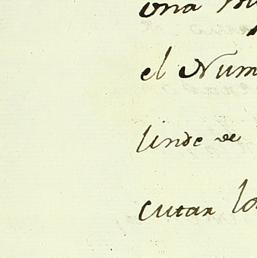 una
el Num
linde de
cutar lo